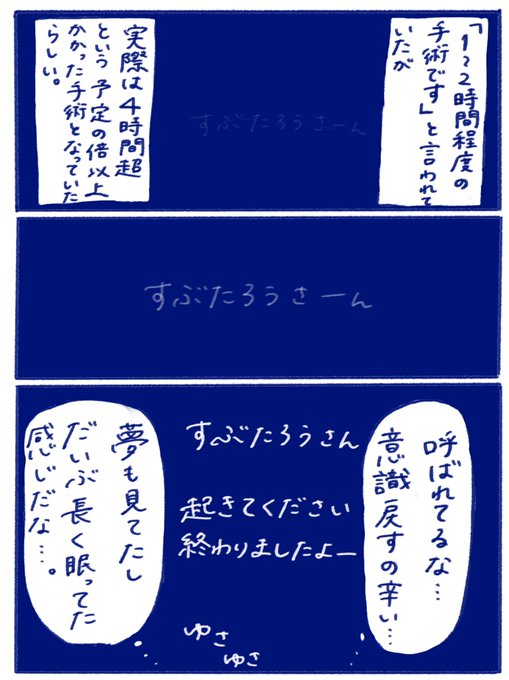 「1〜2時間程度の
手術です」と言われて
いたが
すぶたろうさーん
実際は4時間超
という予定の倍以上
かかった手術となっていた
らしい。
すぶたろうさーん
呼ばれてるな…
意識戻すの辛い…
すぶたろうさん
起きてください
終わりましたよー
夢も見てたし
だいぶ長く眠ってた
感じだな…。
ゆさ
ゆさ